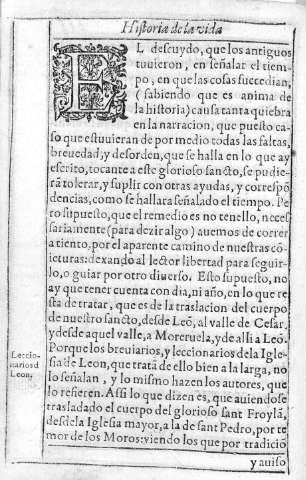 Historia de la vida
EL descuydo, que los antiguos
tuuieron, en señalar el tiem-
po, en que las cosas succedian,
(sabiendo que es anima de
la historia) causa tanta quiebra
en la narracion, que puesto ca-
so que estuuieran de por medio todas las faltas,
breuedad, y desorden, que se halla en lo que ay
escrito, tocante a este glorioso sancto, se pudie-
rā tolerar, y suplir con otras ayudas, y correspō
dencias, como se hallara señalado el tiempo. Pe
ro supuesto, que el remedio es no tenello, neces
sariamente (para dezir algo) auemos de correr
a tiento, por el aparente camino de nuestras cō-
iecturas: dexando al lector libertad para seguir-
lo, o guiar por otro diuerso. Esto supuesto, no
ay que tener cuenta con dia, ni año, en lo que re
sta de tratar, que es de la traslacion del cuerpo
de nuestro sancto, desde Leō, al valle de Cesar,
y desde aquel valle, a Moreruela, y de alli a Leō.
Porque los breuiarios, y leccionarios de la Igle-
sia de Leon, que trata de ello bien a la larga, no
lo señalan, y lo mismo hazen los autores, que
lo refieren. Assi lo que dizen es, que auiendose
trasladado el cuerpo del glorioso sant Froylā,
desde la Iglesia mayor, a la de sant Pedro, por te
mor de los Moros: viendo los que por tradiciō
y auiso
Leccio-
narios d
Leon.